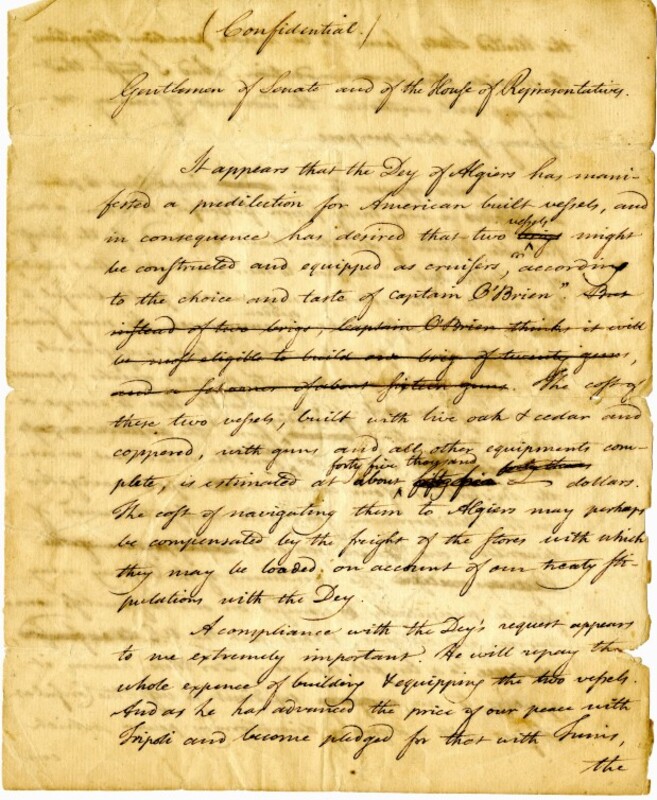 (Confidential.)
Gentlemen of Senate and of the House of Representatives.
It appears that the Dey of Algiers has mani-
fested a predilection for American built vessels, and
vessels
in consequence has desired that two brigs might
be constructed and equipped as cruisers, "according
to the choice and taste of Captain O'Brien". But
instead of two brigs, Captain O'Brien thinks it will
be most eligible to build one brig of twenty guns,
and a schooner of about sixteen guns. The cost of
these two vessels, built with live oak & cedar and
coppered, with guns and all other equipments com-
forty five thousand
plete, is estimated at about dollars.
The cost of navigating them to Algiers may perhaps
be compensated by the freight of the stores with which
they may be loaded on account of our treaty sti-
pulations with the Dey.
A compliance with the Dey's request appears
to me extremely important. He will repay the
whole expence of building & equipping the two vessels.
And as he has advanced the price of our peace with
Tripoli and become pledged for that with Tunis,
the